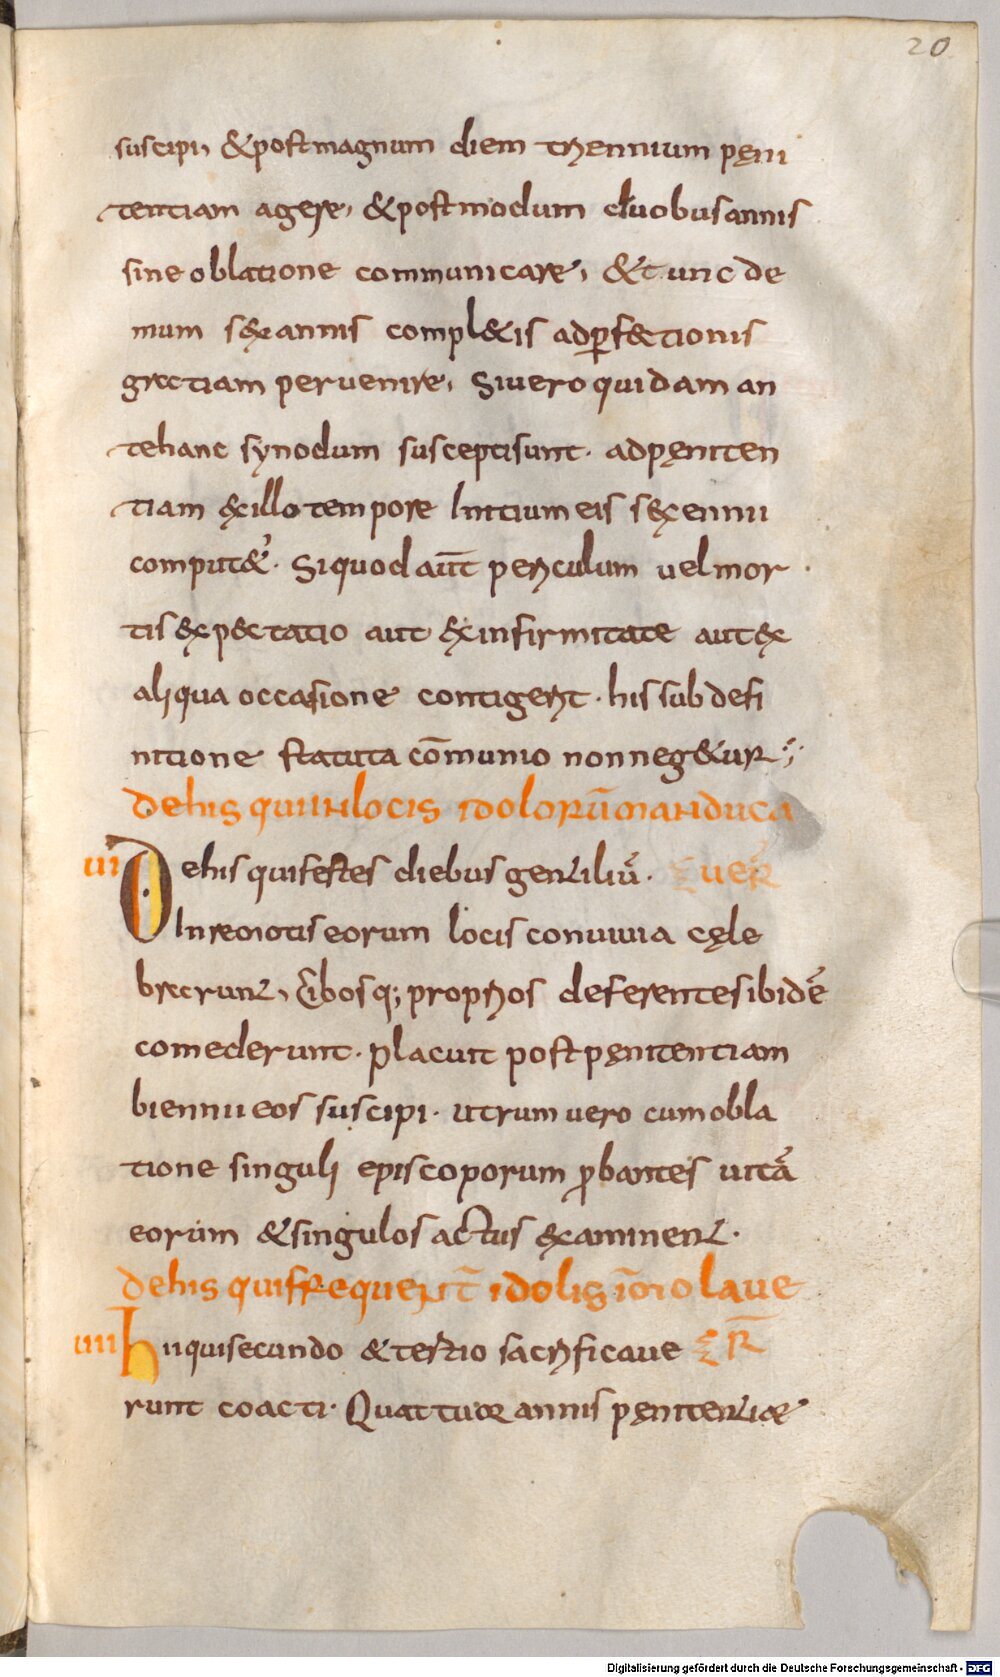 20
suscipi, & post magnum diem triennium pęni
tentiam agere, & postmodum duobus annis
sine oblatione communicare, & tunc de
mum s&x annis compl&is ad perf&ctionis
gratiam pervenire, Si vero quidam an
te hanc synodum suscepti sunt · ad pęniten
tiam &x illo tempore Initium eis s&xennii
comput&ur · Si quod aūt periculum vel mor
tis &xp&ctatio aut &x infirmitate aut &x
aliqua occasione contigerit · his sub defi
nitione statuta cōmunio non neg&ur
de his qui in locis idolorū manduca
verī
vi De his qui festes diebus gentiliū ·
In remotis eorum locis convivia cęle
braverunt, Cibosq; proprios deferentes ibidē
comederunt · placuit post pęnitentiam
biennii eos suscipi · utrum vero cum obla
tione singuli episcoporum probantes vitā
eorum & singulos actus &xaminent ·
de his qui frequent̄ idolis īmolave
r̄
vii hii qui secundo & tertio sacrificave
runt coacti · Quattuor annis pęnitentiae
Digitalisierung gefördert durch die Deutsche Forschungsgemeinschaft - DFG